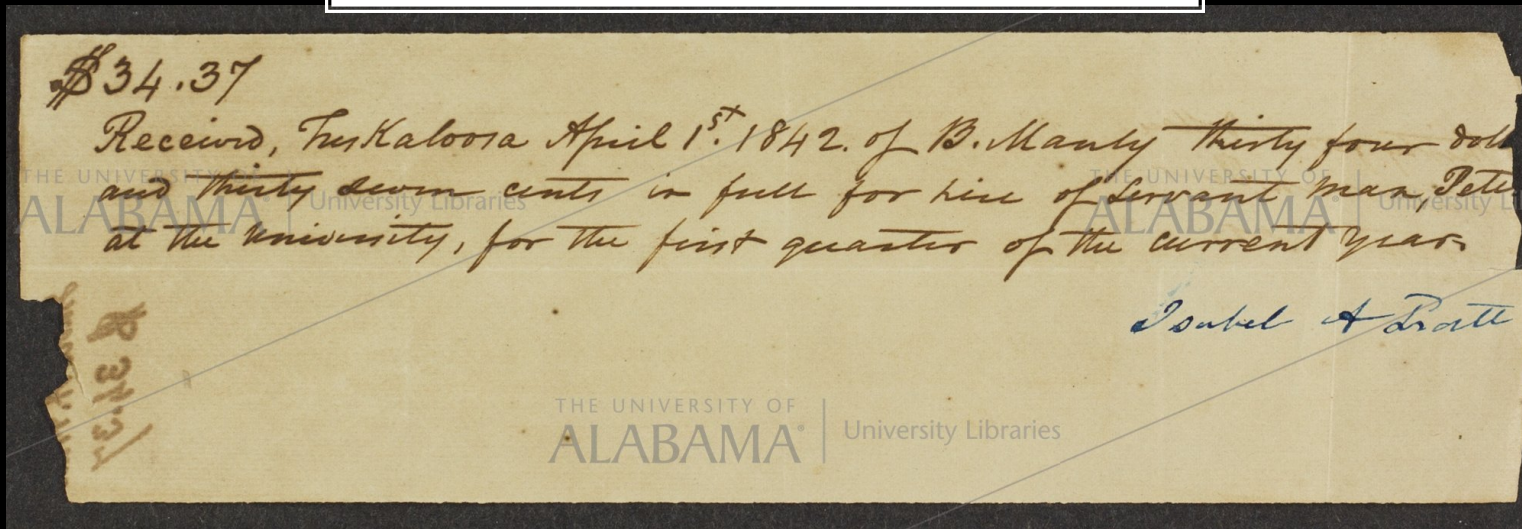 $34.37
Received, Tuskaloosa April 1st. 1842. of B. Manly thirty four doll
and thirty seven cents in full for hire of Servant man, Pete
at the University, for the first quarter of the current year.
Isabel A Pratt
$34.37
THE UNIVERSITY OF
ALABAMA University Libraries
THE UNIVERSITY OF
ALABAMA University L
THE UNIVERSITY OF
ALABAMA University Libraries